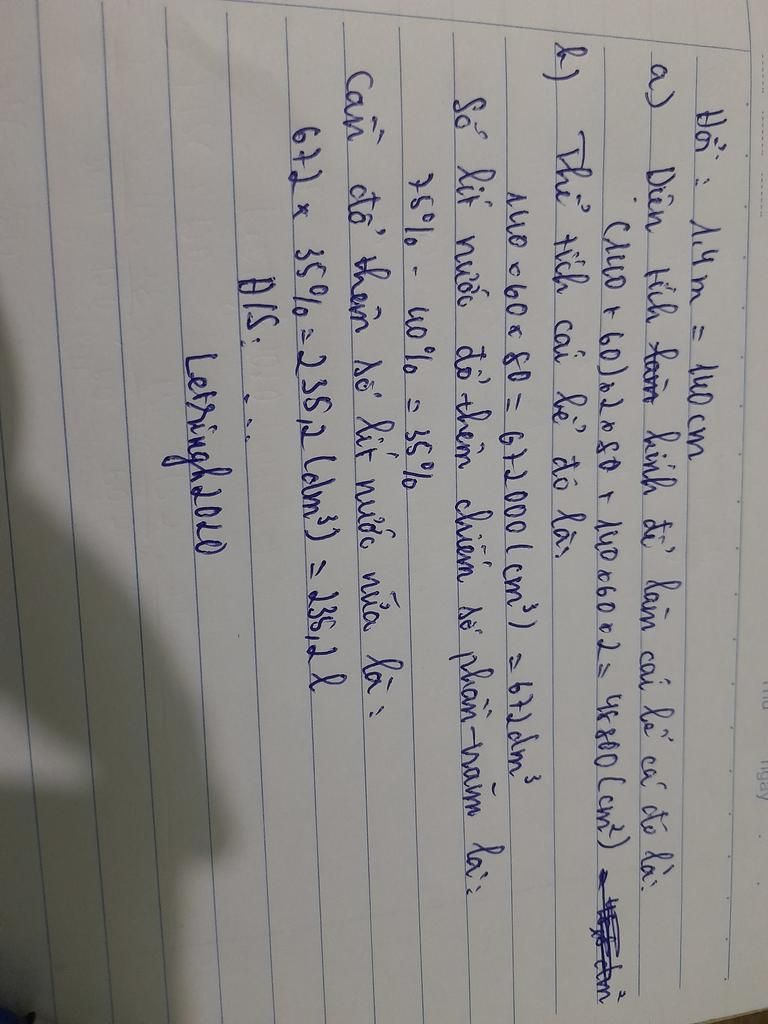 Đổi: 1,4 m = 140 cm
a) Diện tích kính để làm cái bể cá đó là:
(140 + 60) × 2 × 80 + 140 × 60 × 2 = 48800 (cm²)
b) Thể tích cái bể đó là:
140 × 60 × 80 = 672000 (cm³) = 672 dm³
Số lít nước đổ thêm chiếm số phần trăm là:
75% - 40% = 35%
Cần đổ thêm số lít nước nữa là:
672 × 35% = 235,2 (dm³) = 235,2 l
Đ/S: ...